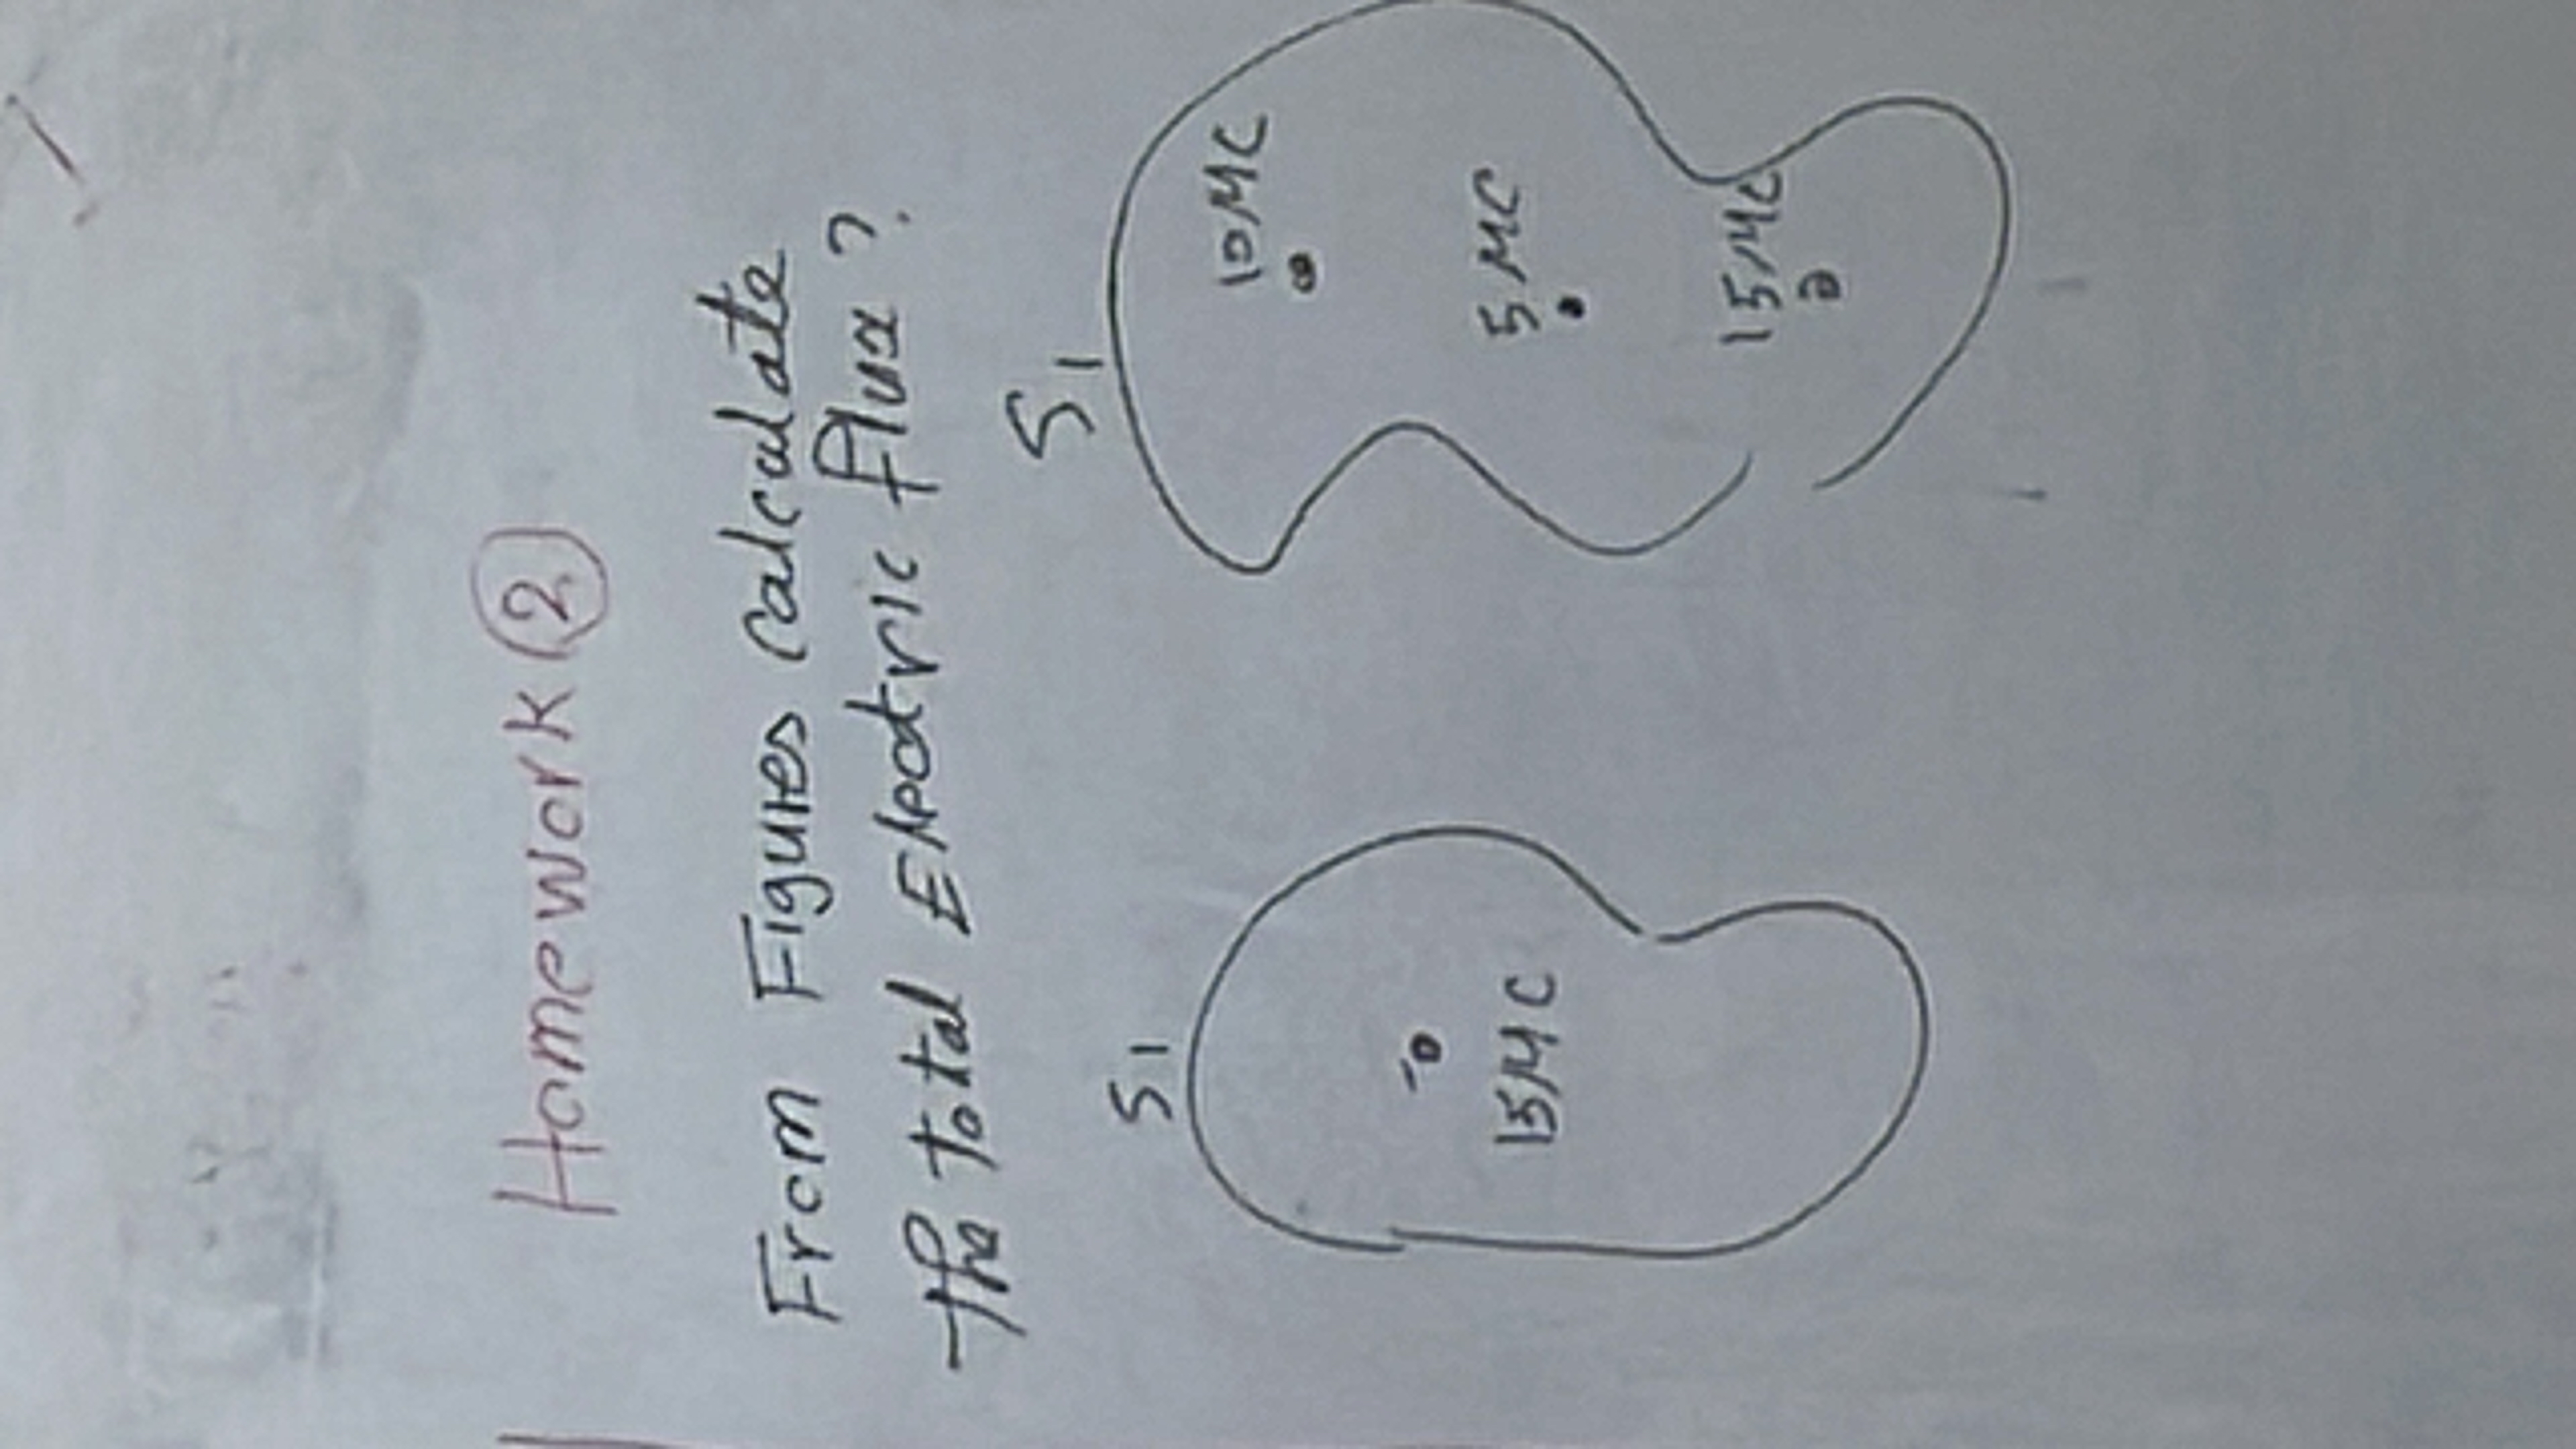 Homework 2
From Figures calculate
the total Electric flux ?
S1
15MC
S1
10MC
5MC
15MC